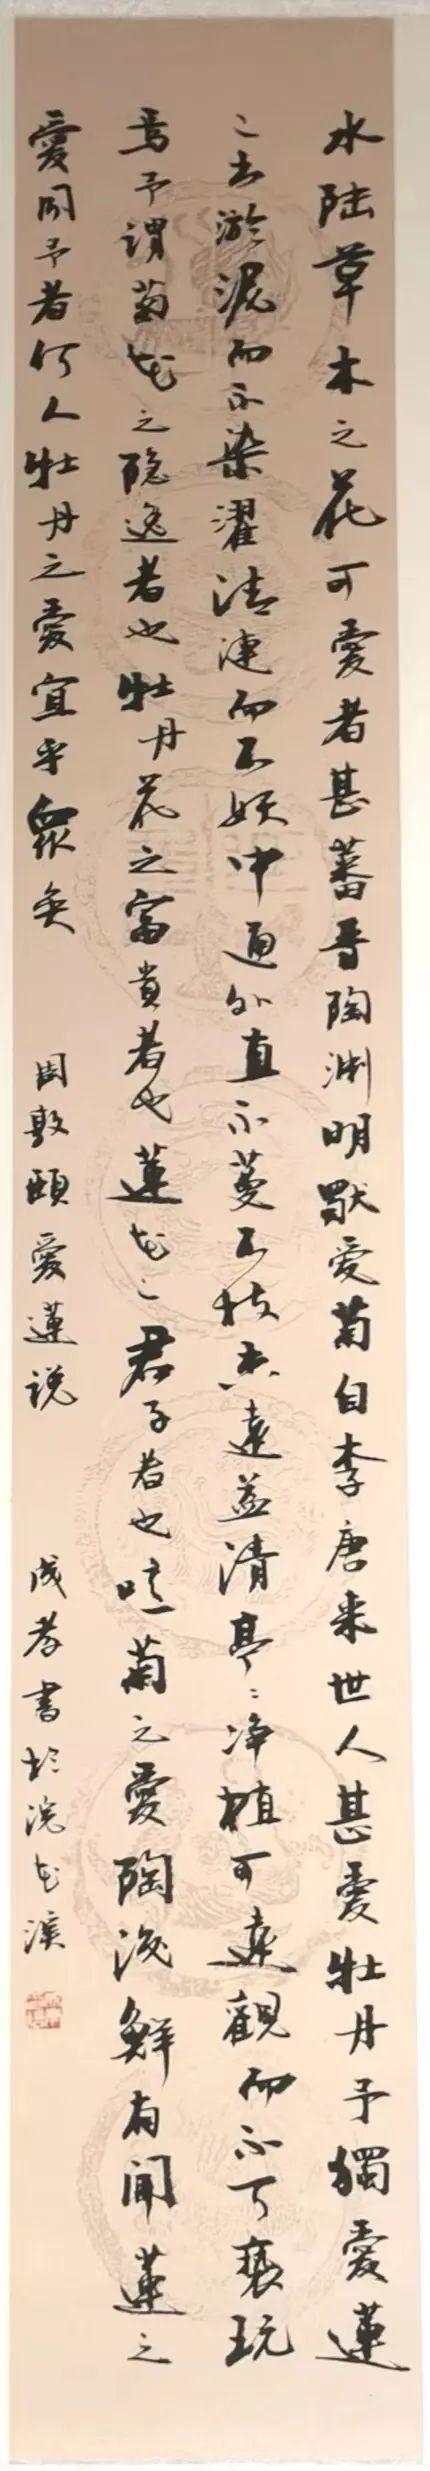 水陆草木之花可愛者甚蕃晋陶渊明獨爱菊自李唐来世人甚愛牡丹予獨愛蓮
〻出淤泥而不染濯清涟而不妖中通外直不蔓不枝香遠益清亭〻净植可遠觀而不可褻玩
焉予謂菊花之隐逸者也牡丹花之富貴者也蓮花〻君子者也噫菊之愛陶後鮮有聞蓮之
愛同予者何人牡丹之愛宜乎衆矣 周敦頤愛蓮説 成孝書於浣花溪